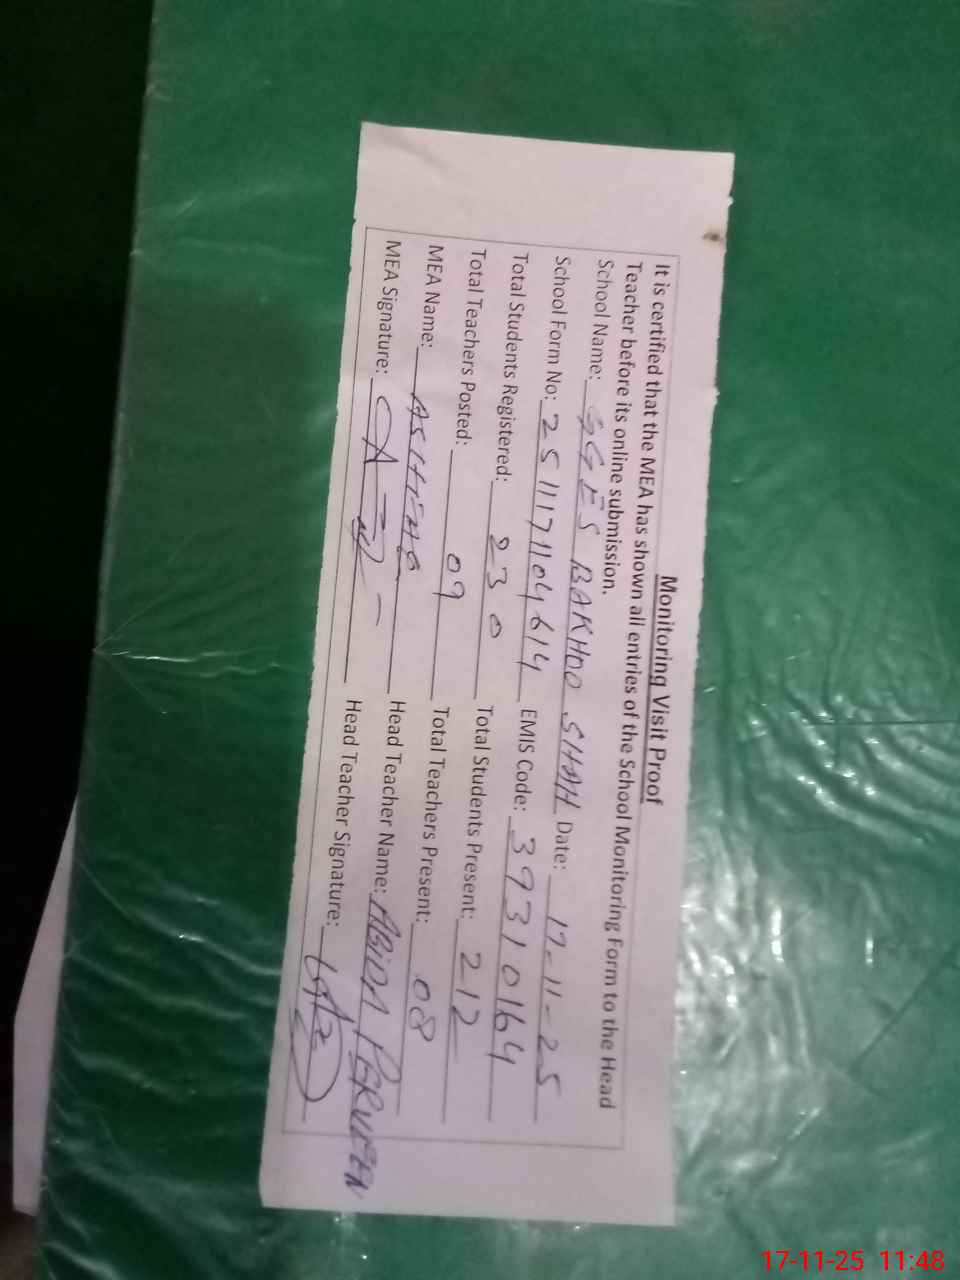 Monitoring Visit Proof
It is certified that the MEA has shown all entries of the School Monitoring Form to the Head
Teacher before its online submission.
School Name: GGES BAKHOO SHAH Date: 17-11-25
School Form No: 2511171104614 EMIS Code: 39310164
Total Students Registered: 230 Total Students Present: 212
Total Teachers Posted: 09 Total Teachers Present: 08
MEA Name: Head Teacher Name: ABIDA PERVEEN
MEA Signature: Head Teacher Signature:
17-11-25 11:48